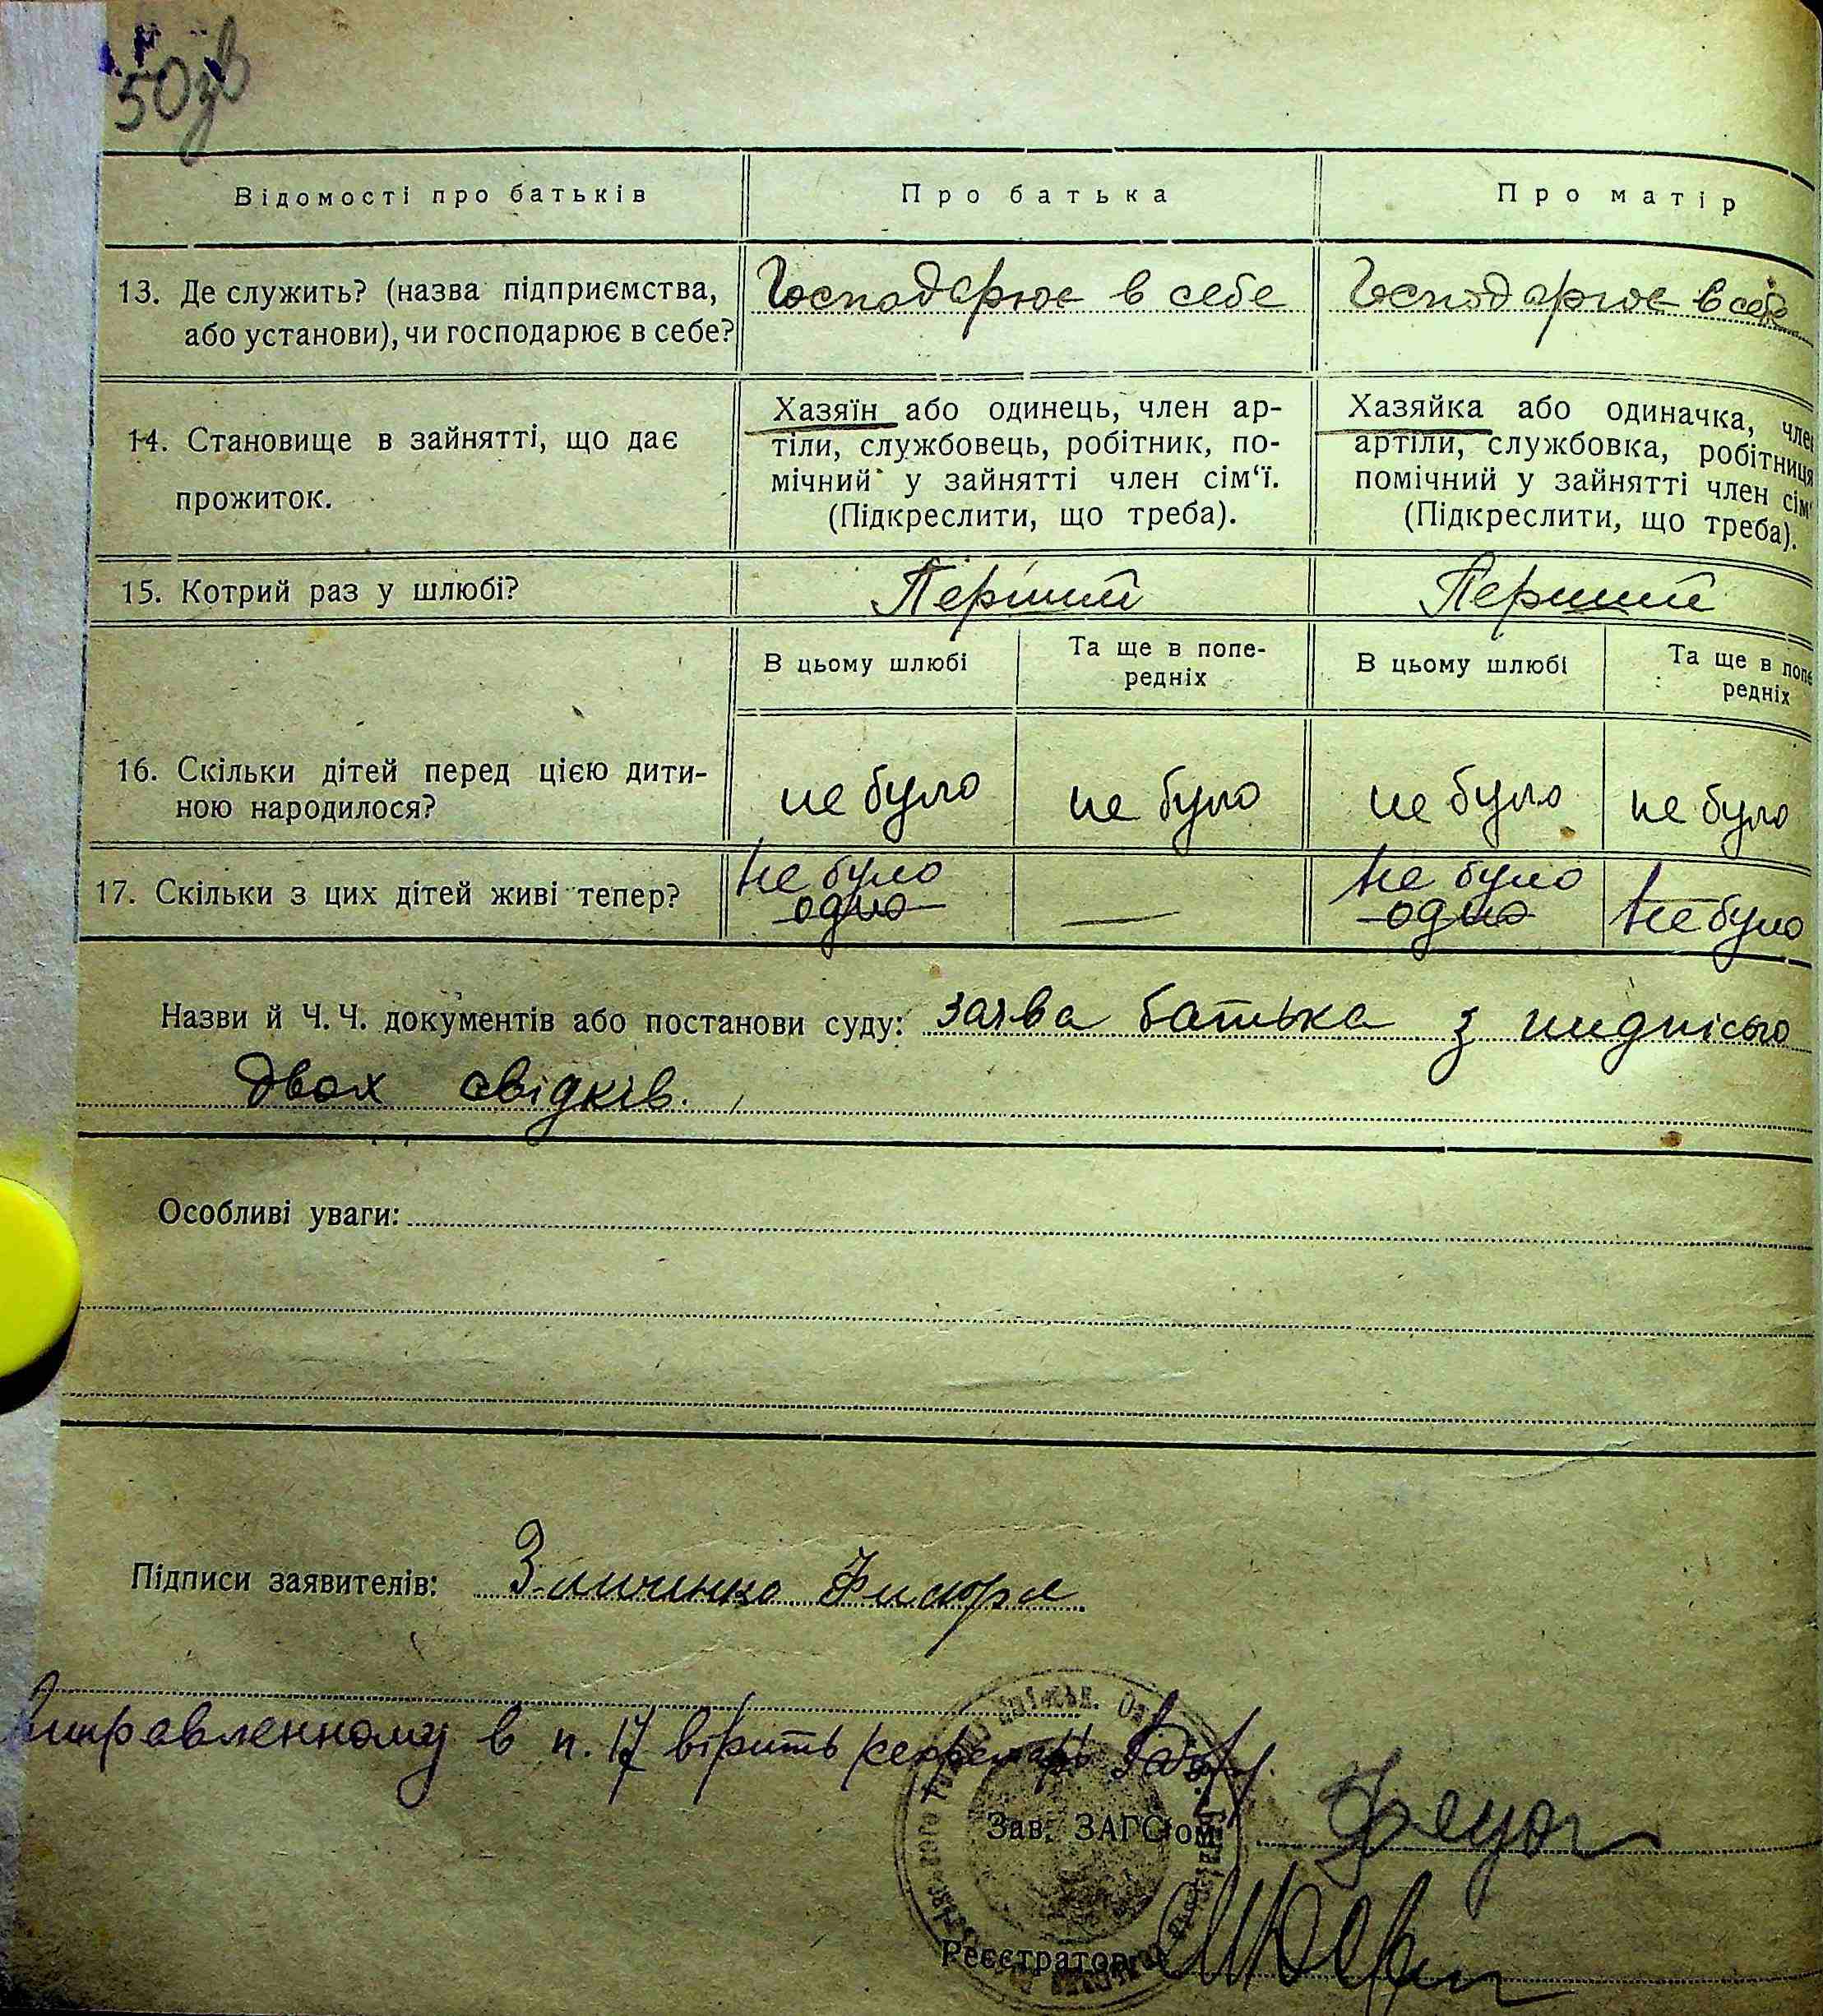 50зв
Відомості про батьків
Про батька
Про матір
13. Де служить? (назва підприємства,
або установи), чи господарює в себе?
Господарює в себе
Господарює в себе
14. Становище в зайнятті, що дає
прожиток.
Хазяїн або одинець, член ар-
тіли, службовець, робітник, по-
мічний у зайнятті член сім‘ї.
(Підкреслити, що треба).
Хазяйка або одиначка, член
артіли, службовка, робітниця
помічний у зайнятті член сім‘
(Підкреслити, що треба).
15. Котрий раз у шлюбі?
Перший
Перший
В цьому шлюбі
Та ще в попе-
редніх
В цьому шлюбі
Та ще в попе
редніх
16. Скільки дітей перед цією дити-
ною народилося?
не було
не було
не було
не було
17. Скільки з цих дітей живі тепер?
не було
одно
—
не було
одно
не було
Назви й Ч. Ч. документів або постанови суду: заява батька з пидписью
двох свідків.
Особливі уваги:
Підписи заявителів:
виправленному в п. 17 вірить секретарь
Зав. ЗАГСом
Реєстратор